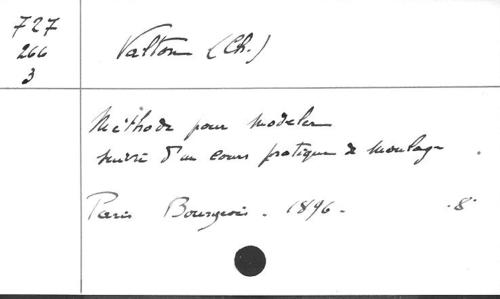 727
266
3
Valton (Ch.)
Méthode pour modeler
suivi d'un cours pratique de moulage .
Paris Bourgeois . 1896 . . 8°